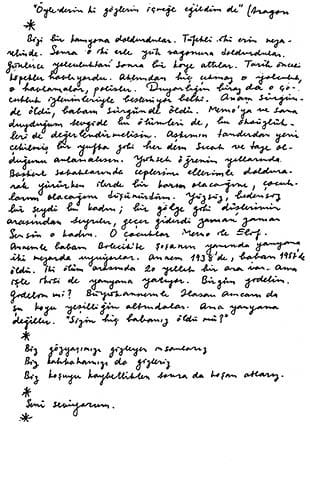 "Öyle derin ki gözlerin içmeğe eğildim de" (Aragon
*
Bizi bir kamyona doldurdular. Tüfekli iki erin neza-
retinde. Sonra o iki erle yük vagonuna doldurdular.
Günlerce yolculuktan sonra bir köye attılar. Tarih öncesi
köpekler havlıyordu. Aklımdan hiç çıkmaz o yolculuk,
o havlamalar, polisler. Duyarlığım biraz da o ço-
cukluk izlenimleriyle besleniyor belki. Annem sürgün-
de öldü, babam sürgünde öldü. Memo'ya ve sana
duyduğum sevgide bu ölümleri de, bu öksüzlük-
leri de değerlendirmelisin. Aşkımın tandırdan yeni
çekilmiş bir yufka gibi her dem sıcak ve taze ol-
duğunu anlamalısın. Yüksek öğrenim yıllarında
Başkent sokaklarında ceplerimi ellerimle doldura-
rak yürürken ilerde bir karım olacağını, çocuk-
larım olacağını düşünürdüm. Yüzsüz, bedensiz
bir şeydi bu kadın; bir gölge gibi düşlerimin
arasından seyrelir, geçer giderdi zaman zaman
Sensin o kadın. O çocuklar Memo ile Elif.
Annemle babam Bilecik'te şosanın yanında yanyana
iki mezarda uyuyorlar. Annem 1938'de, babam 1957'de
öldü. İki ölüm arasında 20 yıllık bir ara var. Ama
işte ikisi de yanyana yatıyor. Bizim gödelim.
Gidelim mi? Büyükannemle Hasan Amcam da
şu koyu yeşilliğin altındalar. Ama yanyana
değiller. "Sizin hiç babanız öldü mü?"
*
Biz gözyaşımızı gizleyen insanlarız
Biz kahkahamızı da gizleriz
Biz koşuyu kaybettikten sonra da koşan atlarız.
*
Seni seviyorum.
*